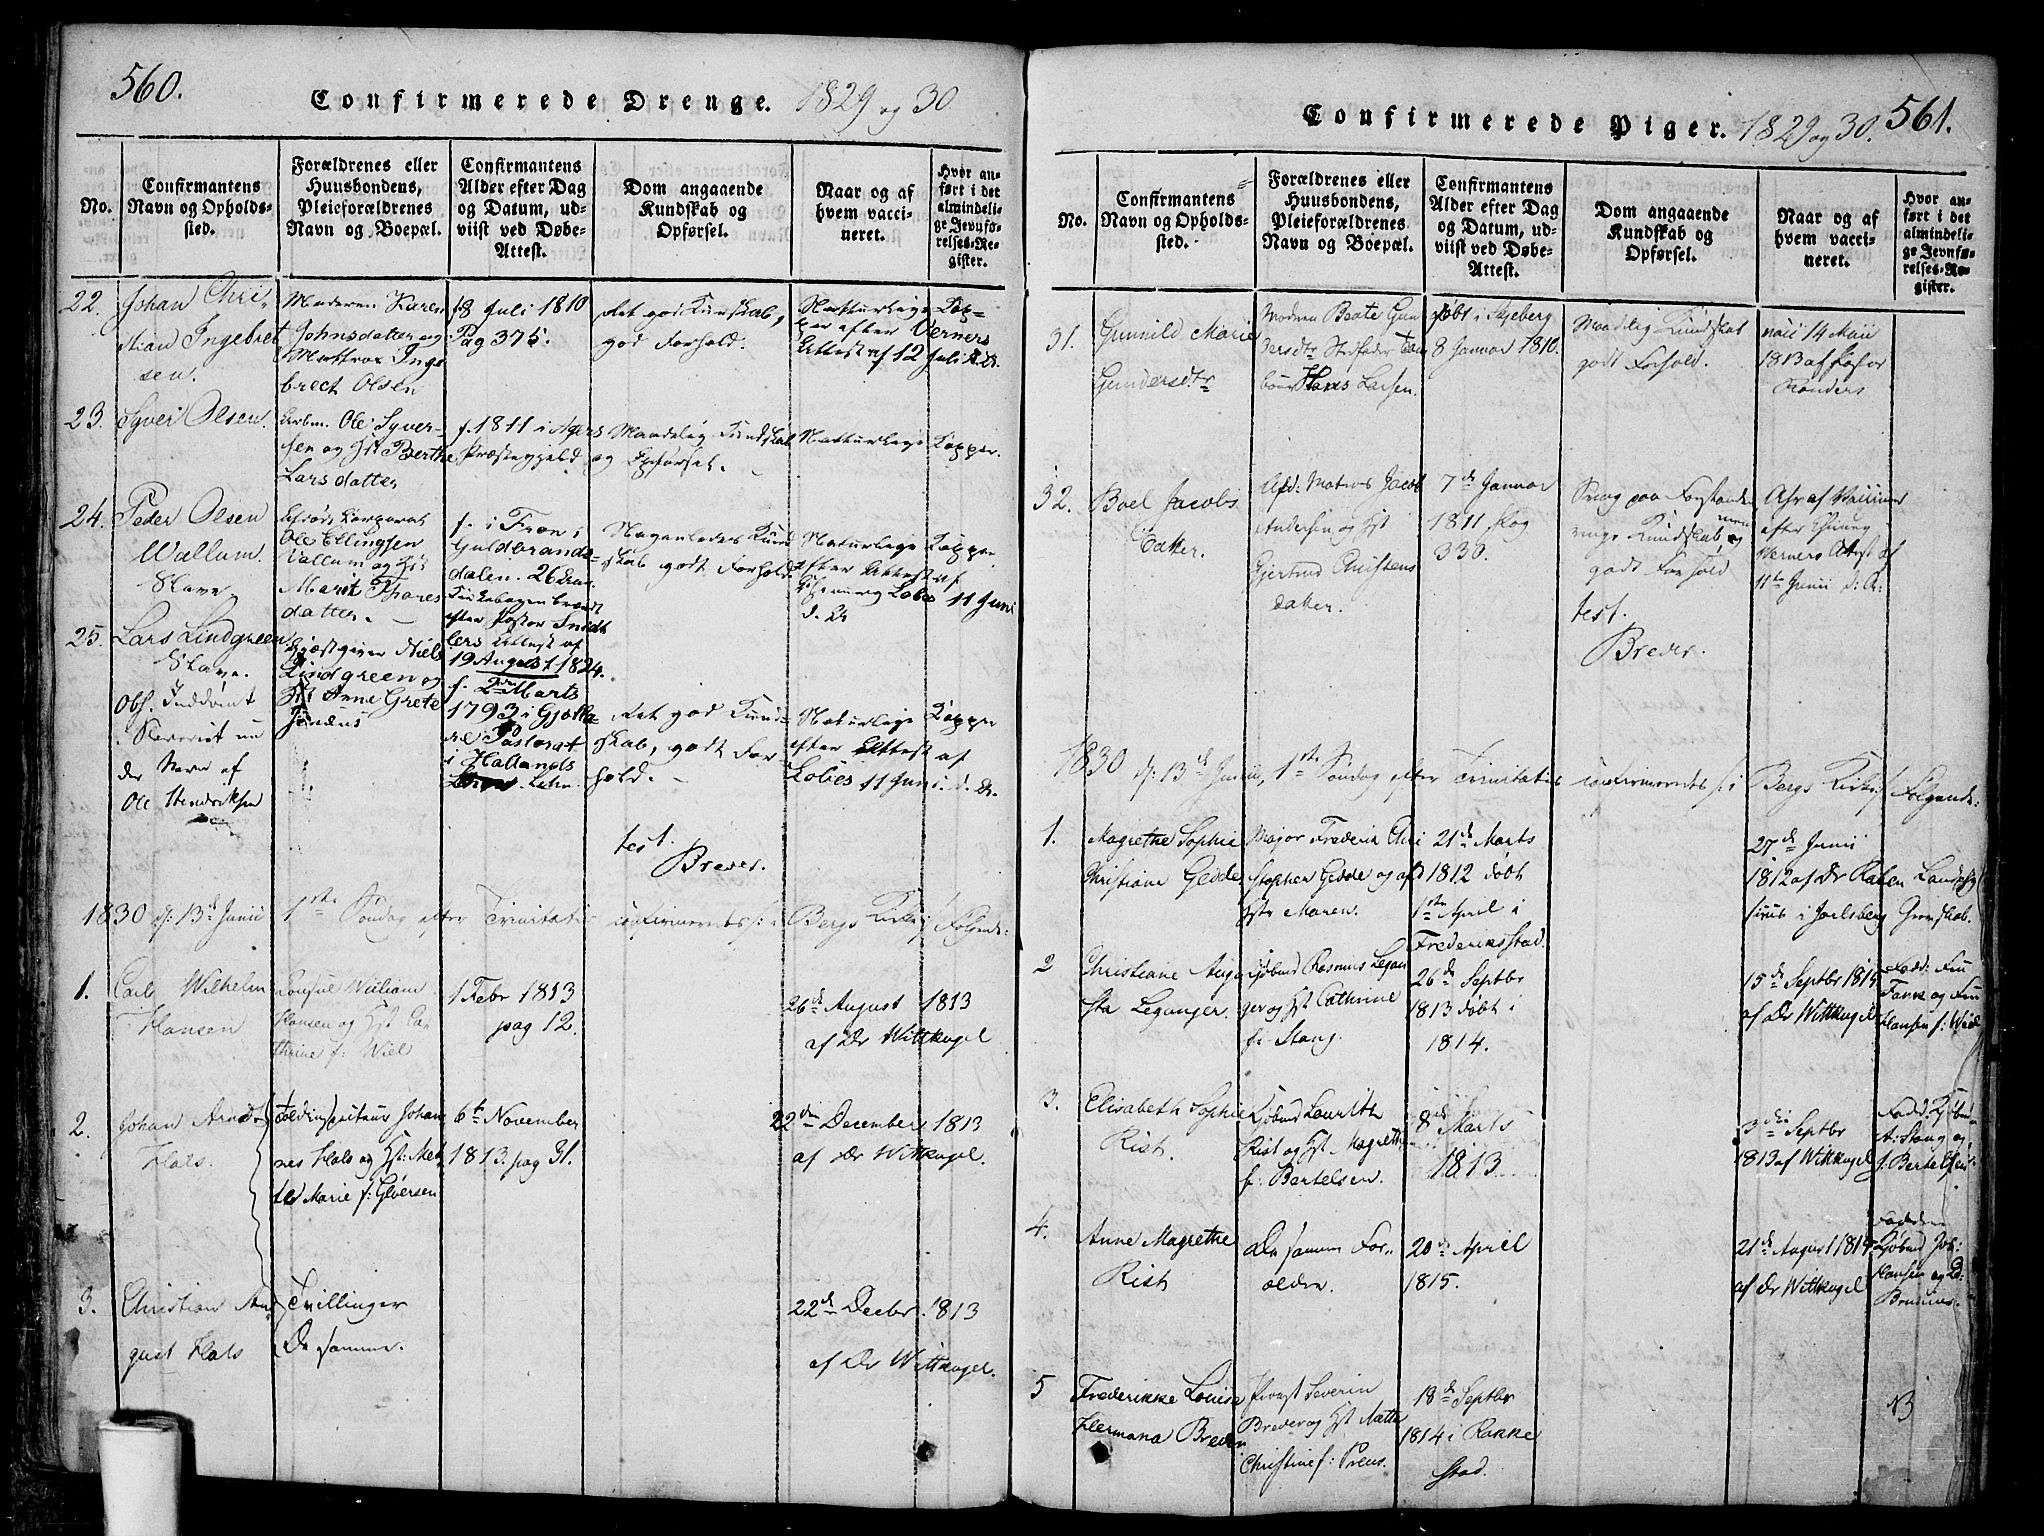 560.
Confirmerede Drenge. 1829 og 30
No.
Confirmantens
Navn og Opholds-
sted.
Forældrenes eller
Huusbondens,
Pleieforældrenes
Navn og Boepæl.
Confirmantens
Alder efter Dag
og Datum, ud-
viist ved Døbe-
Attest.
Dom angaaende
Kundskab og
Opførsel.
Naar og af
hvem vacci-
neret.
Hvor an-
ført i det
almindeli-
ge Jevnfø-
relses-Re-
gister.
22.
Johan Chri-
stian Ingebret
sen.
Moderen Karen
Johnsdatter og
Mattros Inge
brect Olsen
f 8 Juli 1810
Pag 375.
Ret god Kundskab,
god Forhold.
Natturlige Kop-
per efter Verners
Attest af 12 Juli d. Ar.
23.
Syver Olsen.
Arbm. Ole Syver-
sen og Hst Berthe
Larsdatter
f. 1811 i Agers
Præstegjeld
Maadelig Kundskab
og Opførsel.
Natturlige Kopper.
24.
Peder Olsen
Wallum.
Slave.
Ole Ellingsen
Vallum og Hst
Marit Thores
datter.
f. i Fron i
Guldbrands-
dalen. 26
efter Pastor
lers Attest af
19 August 1824.
Nogenledes Kund
skab godt Forhold.
Naturlige Kopper
efter Attest af
Lobes 11 Juni
d. Ar
25.
Lars Lindgreen
Slave.
Obs. Inddømt
Slaveriet un
der Navn af
Ole Henriksen
Gjæstgiver Niels
Lindgreen og
Hst Anne Grete
f. 2den Marts
1793 i
re Pastorat
i Hallands
Lehn.
Ret god Kund-
skab, godt For
hold.
Naturlige Kopper
efter Attest af
Lobes 11 Juni. d. Ar.
test.
Breder.
1830 d: 13d Junii 1ste Søndag efter Trinitatis confirmeredes i Bergs Kirke Følgende:
1.
Carl Wilhelm
Hansen
Consul William
Hansen og Hst Ca-
thrine f: Wiel
1 Febr 1813
pag 12.
26d August 1813
af Dr Wittkugel
2.
Johan Arndt
Hals.
Toldinspecteur Johan
nes Hals og Hst: Met
te Marie f: Glørsen
6te November
1813. pag 31.
22den December 1813
af Dr Wittkugel.
3.
Christian Au
gust Hals
Tvillinger
De samme.
22d Decbr. 1813
af Dr Wittkugel.
561.
Confirmerede Piger. 1829 og 30.
No.
Confirmantens
Navn og Opholds-
sted.
Forældrenes eller
Huusbondens,
Pleieforældrenes
Navn og Boepæl.
Confirmantens
Alder efter Dag
og Datum, ud-
viist ved Døbe-
Attest.
Dom angaaende
Kundskab og
Opførsel.
Naar og af
hvem vacci-
neret.
Hvor an-
ført i det
almindeli-
ge Jevnfø-
relses-Re-
gister.
31.
Gunnild Marie
Gundersdtr
Modren Beate Gun
dersdtr Stedfader Tam
bour Hans Larsen.
født i Skjeberg
8 Januar 1810.
Maadelig Kundskab
godt Forhold.
vacc 14 Maii
1813 af
32.
Boel Jacobs
Datter.
Afd: Matros Jacob
Andersen og Hst
Gjertrud Christens
datter.
7d Januar
1811 pag
330.
Svag paa Forstanden
ringe Kundskab men
godt Forhold
test.
Breder.
efter
Verners Attest af
11te Junii d: Ar:
1830 d: 13d Junii, 1ste Søndag efter Trinitatis confirmeredes i Bergs Kirke Følgende:
1.
Magrethe Sophie
Christiane Gedde
Major Frederik Chri
stopher Gedde og af
Hstr Maren.
21d Marts
1812 døbt
1ste April i
Frederiksstad.
27d Junii
1812 af Dr Raben Landphy
sicus i Jarlsberg Grevskab.
2
Christiane Augu
sta Leganger.
Kjøbmd Rasmus Legan
ger og Hst Cathrine
f: Stang.
26d Septbr
1813 døbt i
1814.
15d Septbr 1814
af Dr Wittkugel
Fadd: Fru
Tank og Fru
Hansen f: Wiel
3.
Elisabeth Sophie
Rist.
Kjøbmd Lauritz
Rist og Hst Magrethe
f: Bertelsen.
8de Marts
1813.
3die Septbr
1813 af Wittkugel
Fadd: Kjøbm
A: Stang og
f: Bertelsen
4.
Anne Magrethe
Rist
De samme For-
ældre.
20de April
1815.
21d August 1814
af Dr Wittkugel
Faddere
Kjøbmd Joh:
Hansen og
5
Frederikke Louise
Hermana Breder
Provst Severin
Breder og Hst Mette
Christine f: Prens.
18d Septbr
1814 i Rakke
stad.
NB